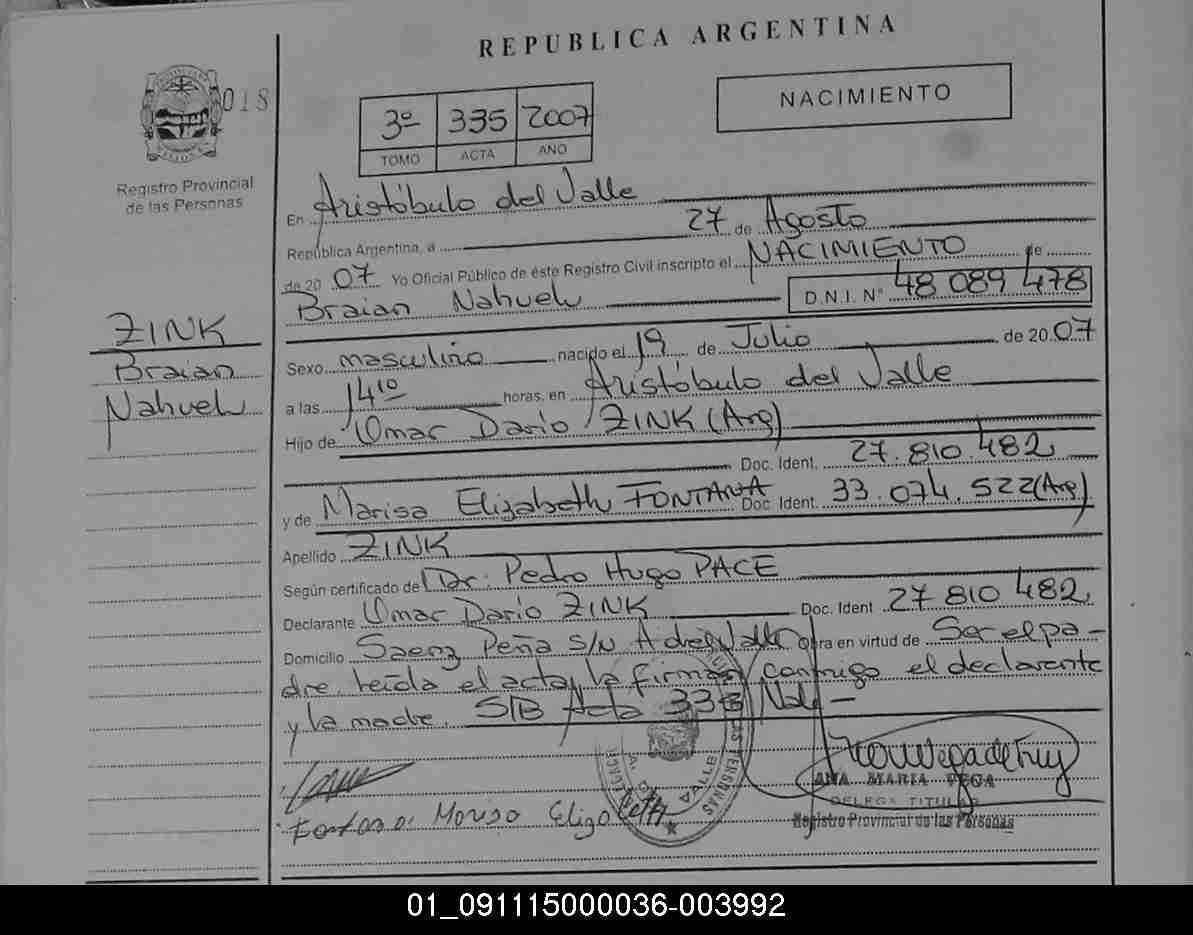 REPUBLICA ARGENTINA
018
NACIMIENTO
3º 335 2007
TOMO ACTA AÑO
Registro Provincial
de las Personas
En Aristóbulo del Valle
República Argentina, a 27 de Agosto
de 20 07 Yo Oficial Público de éste Registro Civil inscripto el NACIMIENTO de
Braian Nahuel D.N.I. Nº 48 089 478
ZINK
Braian
Nahuel
Sexo masculino nacido el 19 de Julio de 20 07
a las 14 10 horas, en Aristóbulo del Valle
Hijo de Omar Dario ZINK (Arg)
Doc. Ident. 27.810.482
y de Marisa Elizabeth FONTANA Doc. Ident. 33.074.522 (Arg)
Apellido ZINK
Según certificado de Dr. Pedro Hugo PACE
Declarante Omar Dario ZINK Doc. Ident 27 810 482
Domicilio Saenz Peña s/N A del Valle Obra en virtud de Ser el pa-
dre, leída el acta, la firman conmigo el declarante
y la madre. S/B Acta 335 Vale -
ANA MARIA VEGA
DELEGA TITULAR
Registro Provincial de las Personas
01_091115000036-003992